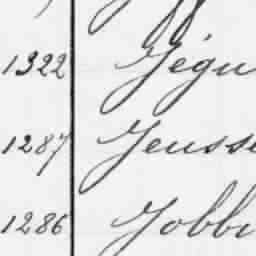 1322 Jégu
1287 Jeusse
1286 Jobbi